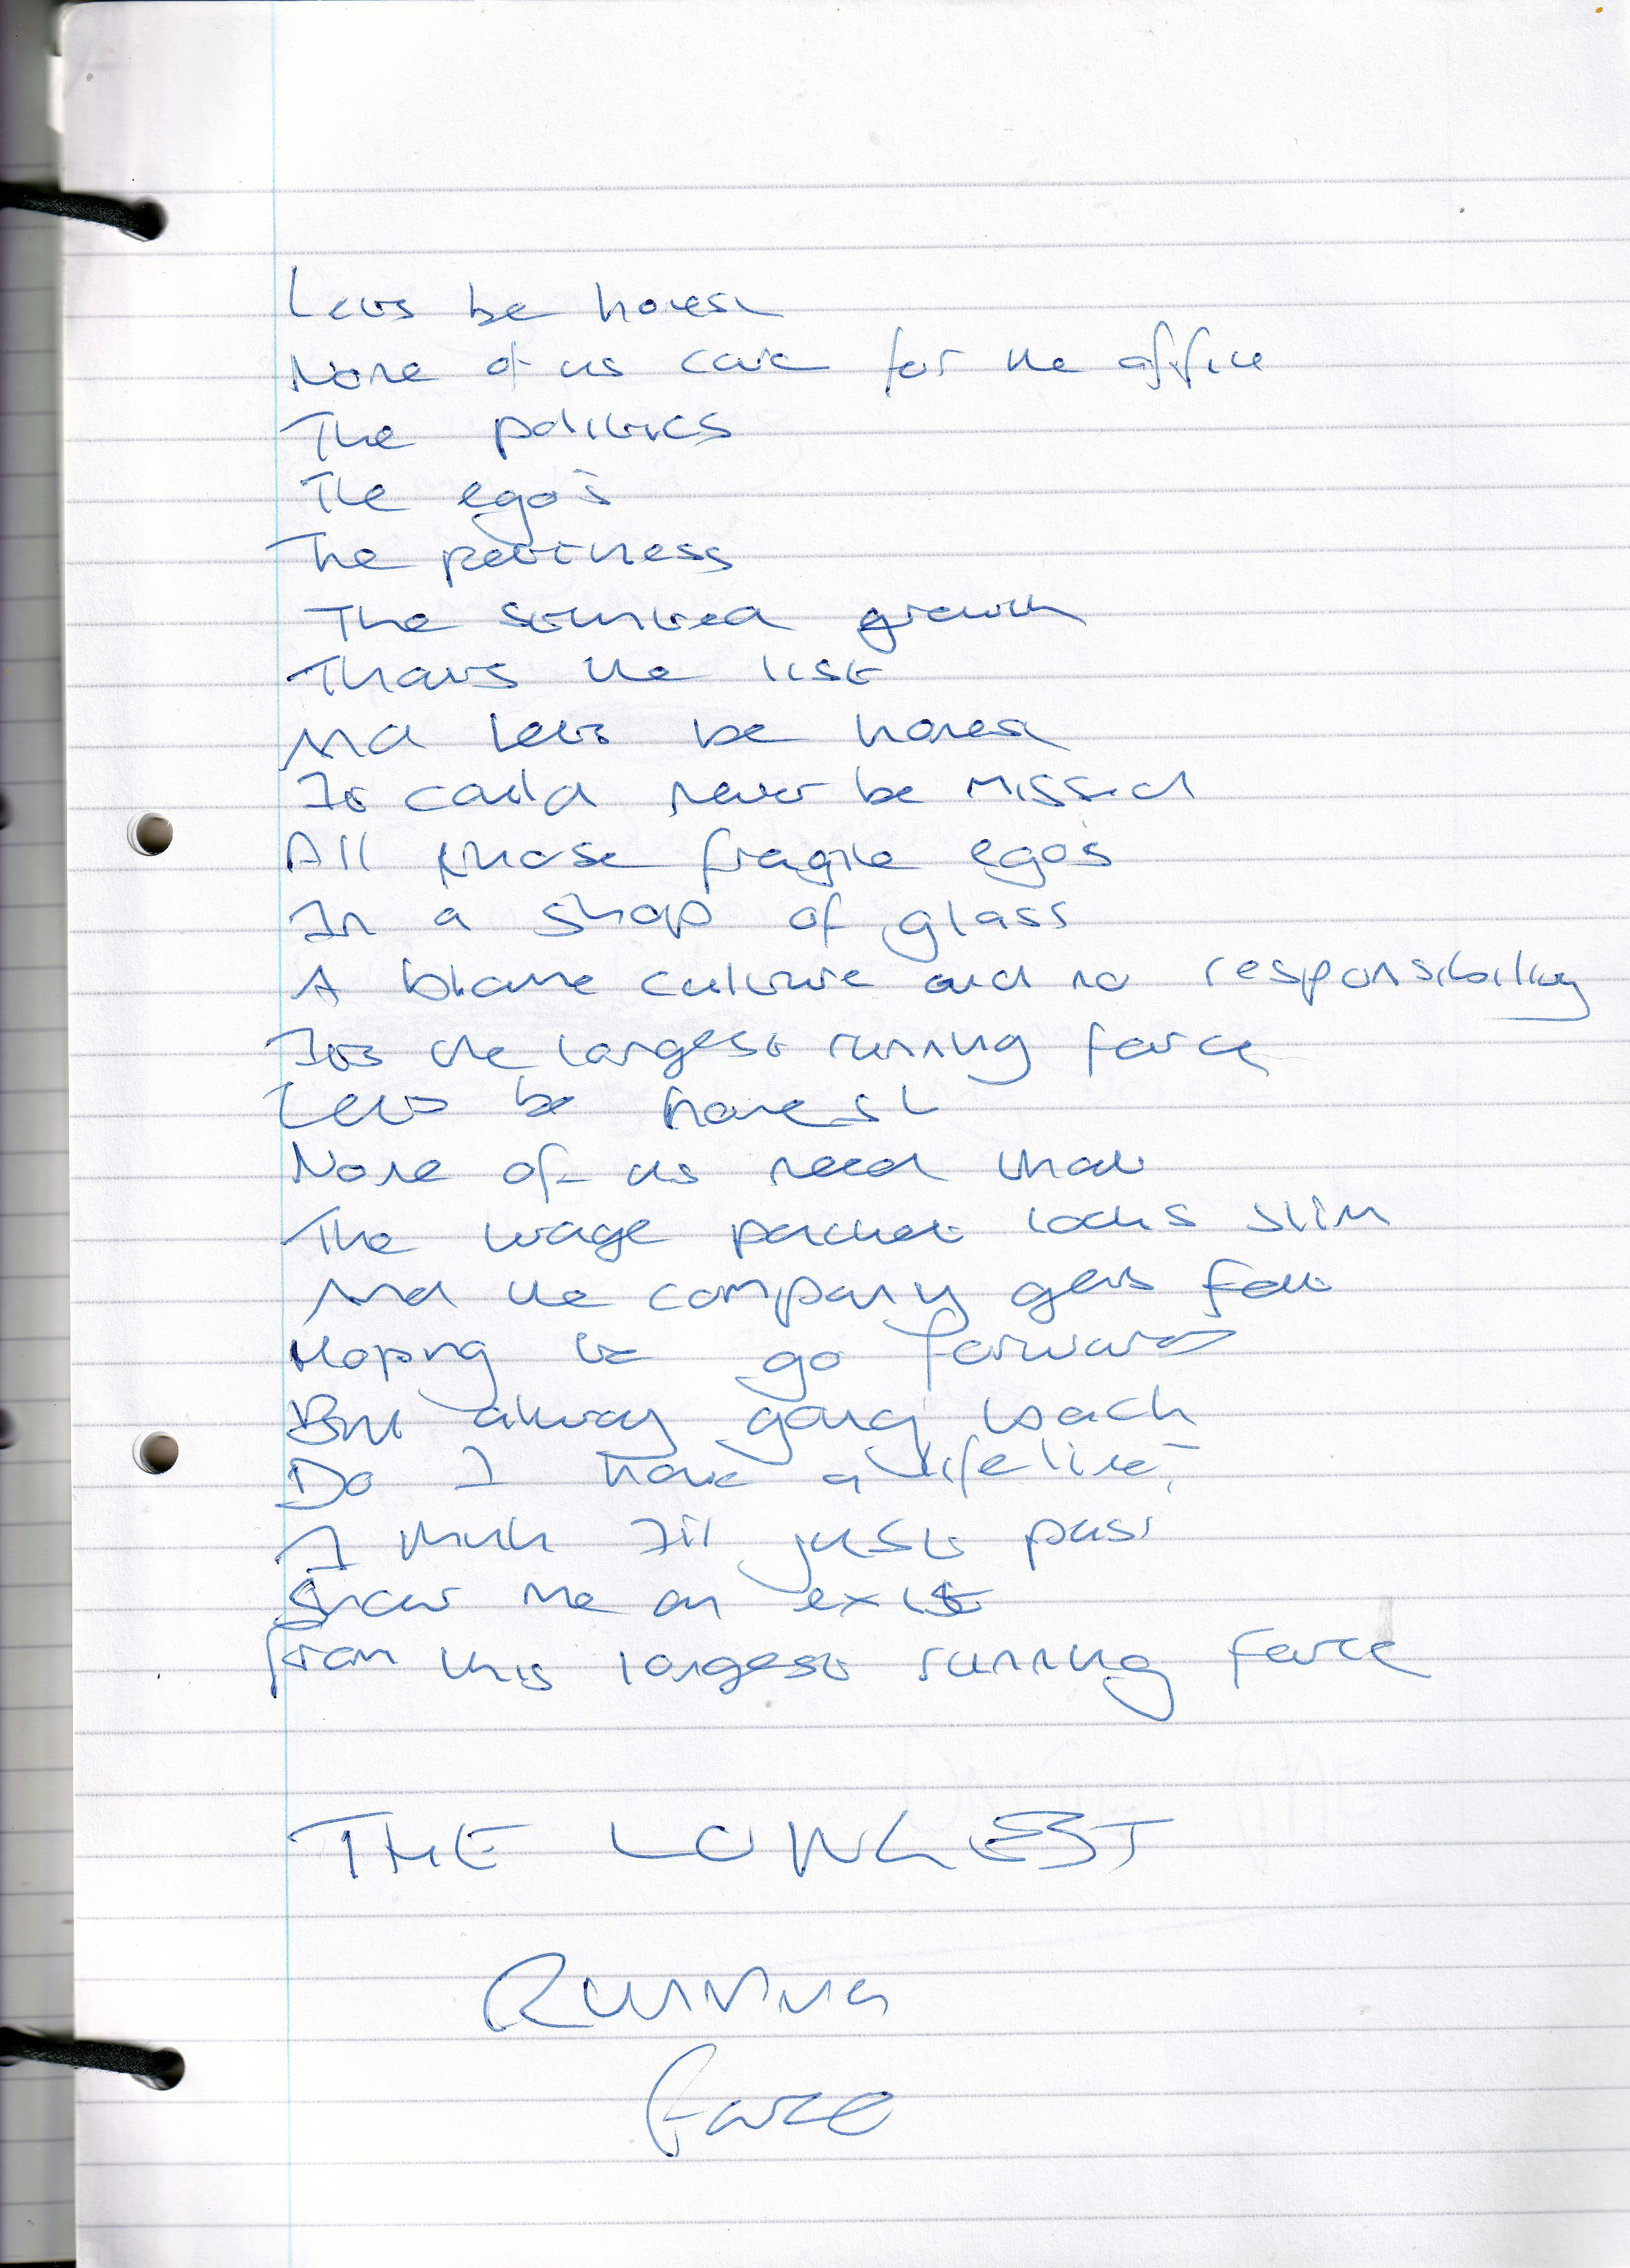 Lets be honest
None of us care for the office
The politics
The ego's
The pettiness
The stunted growth
Thats the list
And lets be honest
It could never be missed
All those fragile ego's
In a shop of glass
A blame culture and no responsibility
Its the longest running farce
Lets be honest
None of us need that
The wage packet looks slim
And the company gets fat
Hoping to go forward
But always going back
Do I have a lifeline?
I think I'll just pass
Show me an exit
from this longest running farce
THE LONGEST
RUNNING
farce